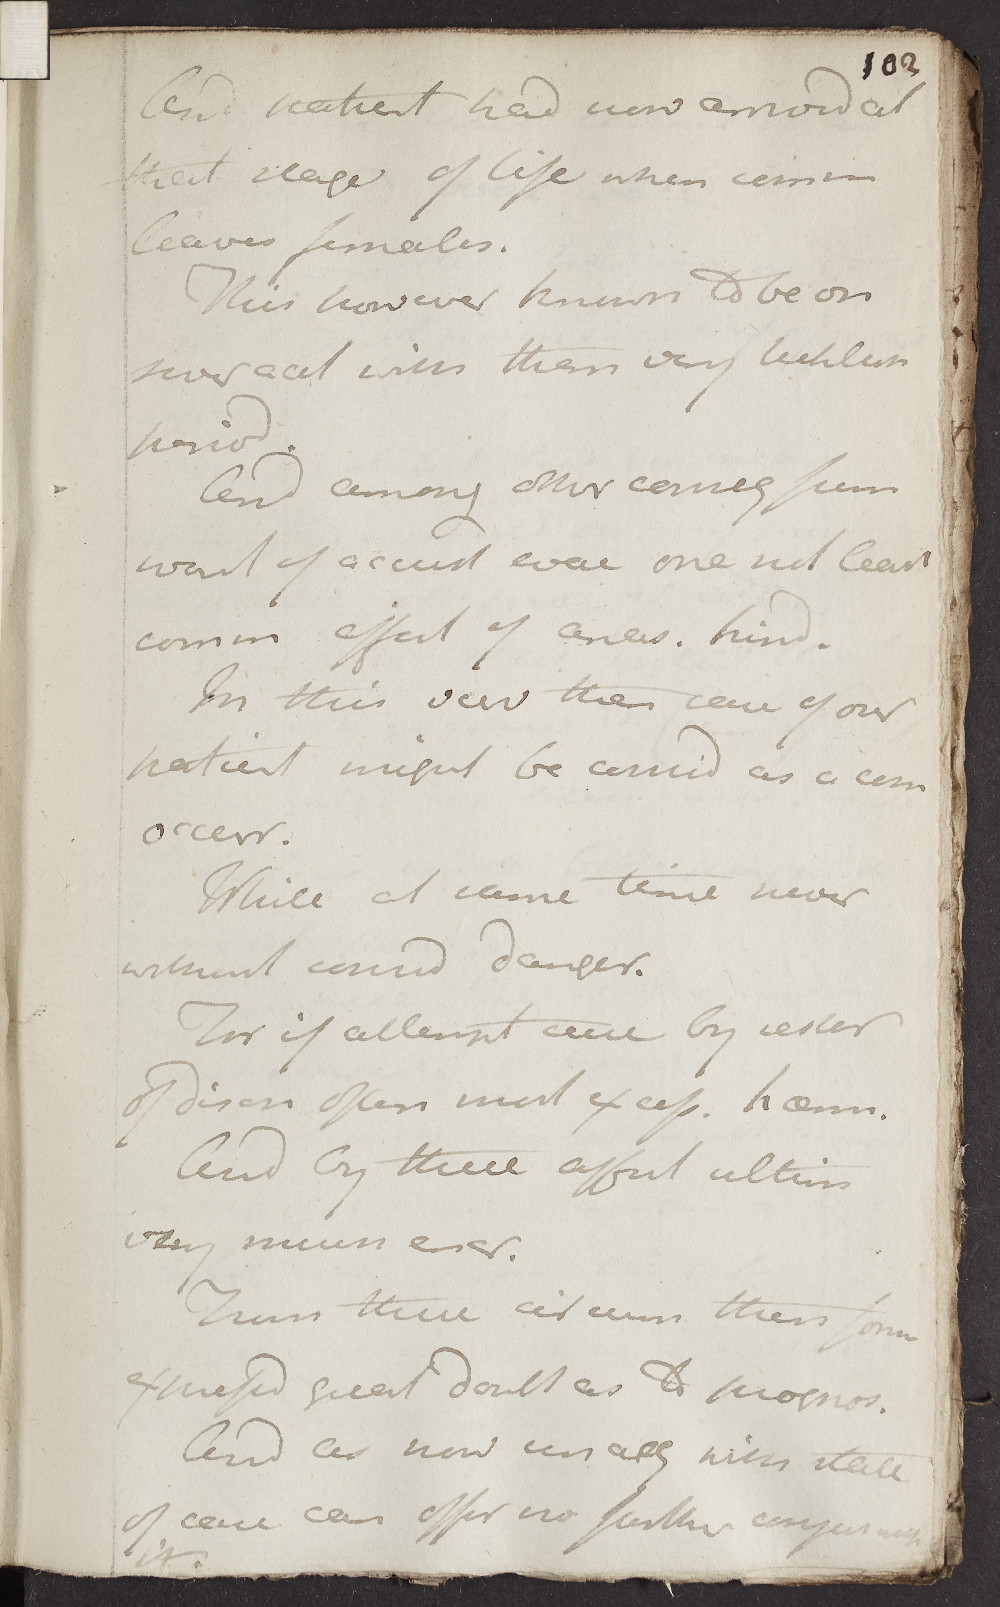 102
And patient had now arrivd at
that stage of life when comm
leaves females.
This however known to be on
sever acct with them very
period.
And among other conseq from
want of accust evac one not least
comm effect of kind.
In this view then case of our
patient might be consid as a com
occurr.
While at same time never
without consid danger.
For if attempt cure by restor
of disch often most excess. hæm.
And by these afford ultim
very
From these circum then form
expressd great doubt as to prognos.
And as now unacq with state
of case can offer no further conject with
it.